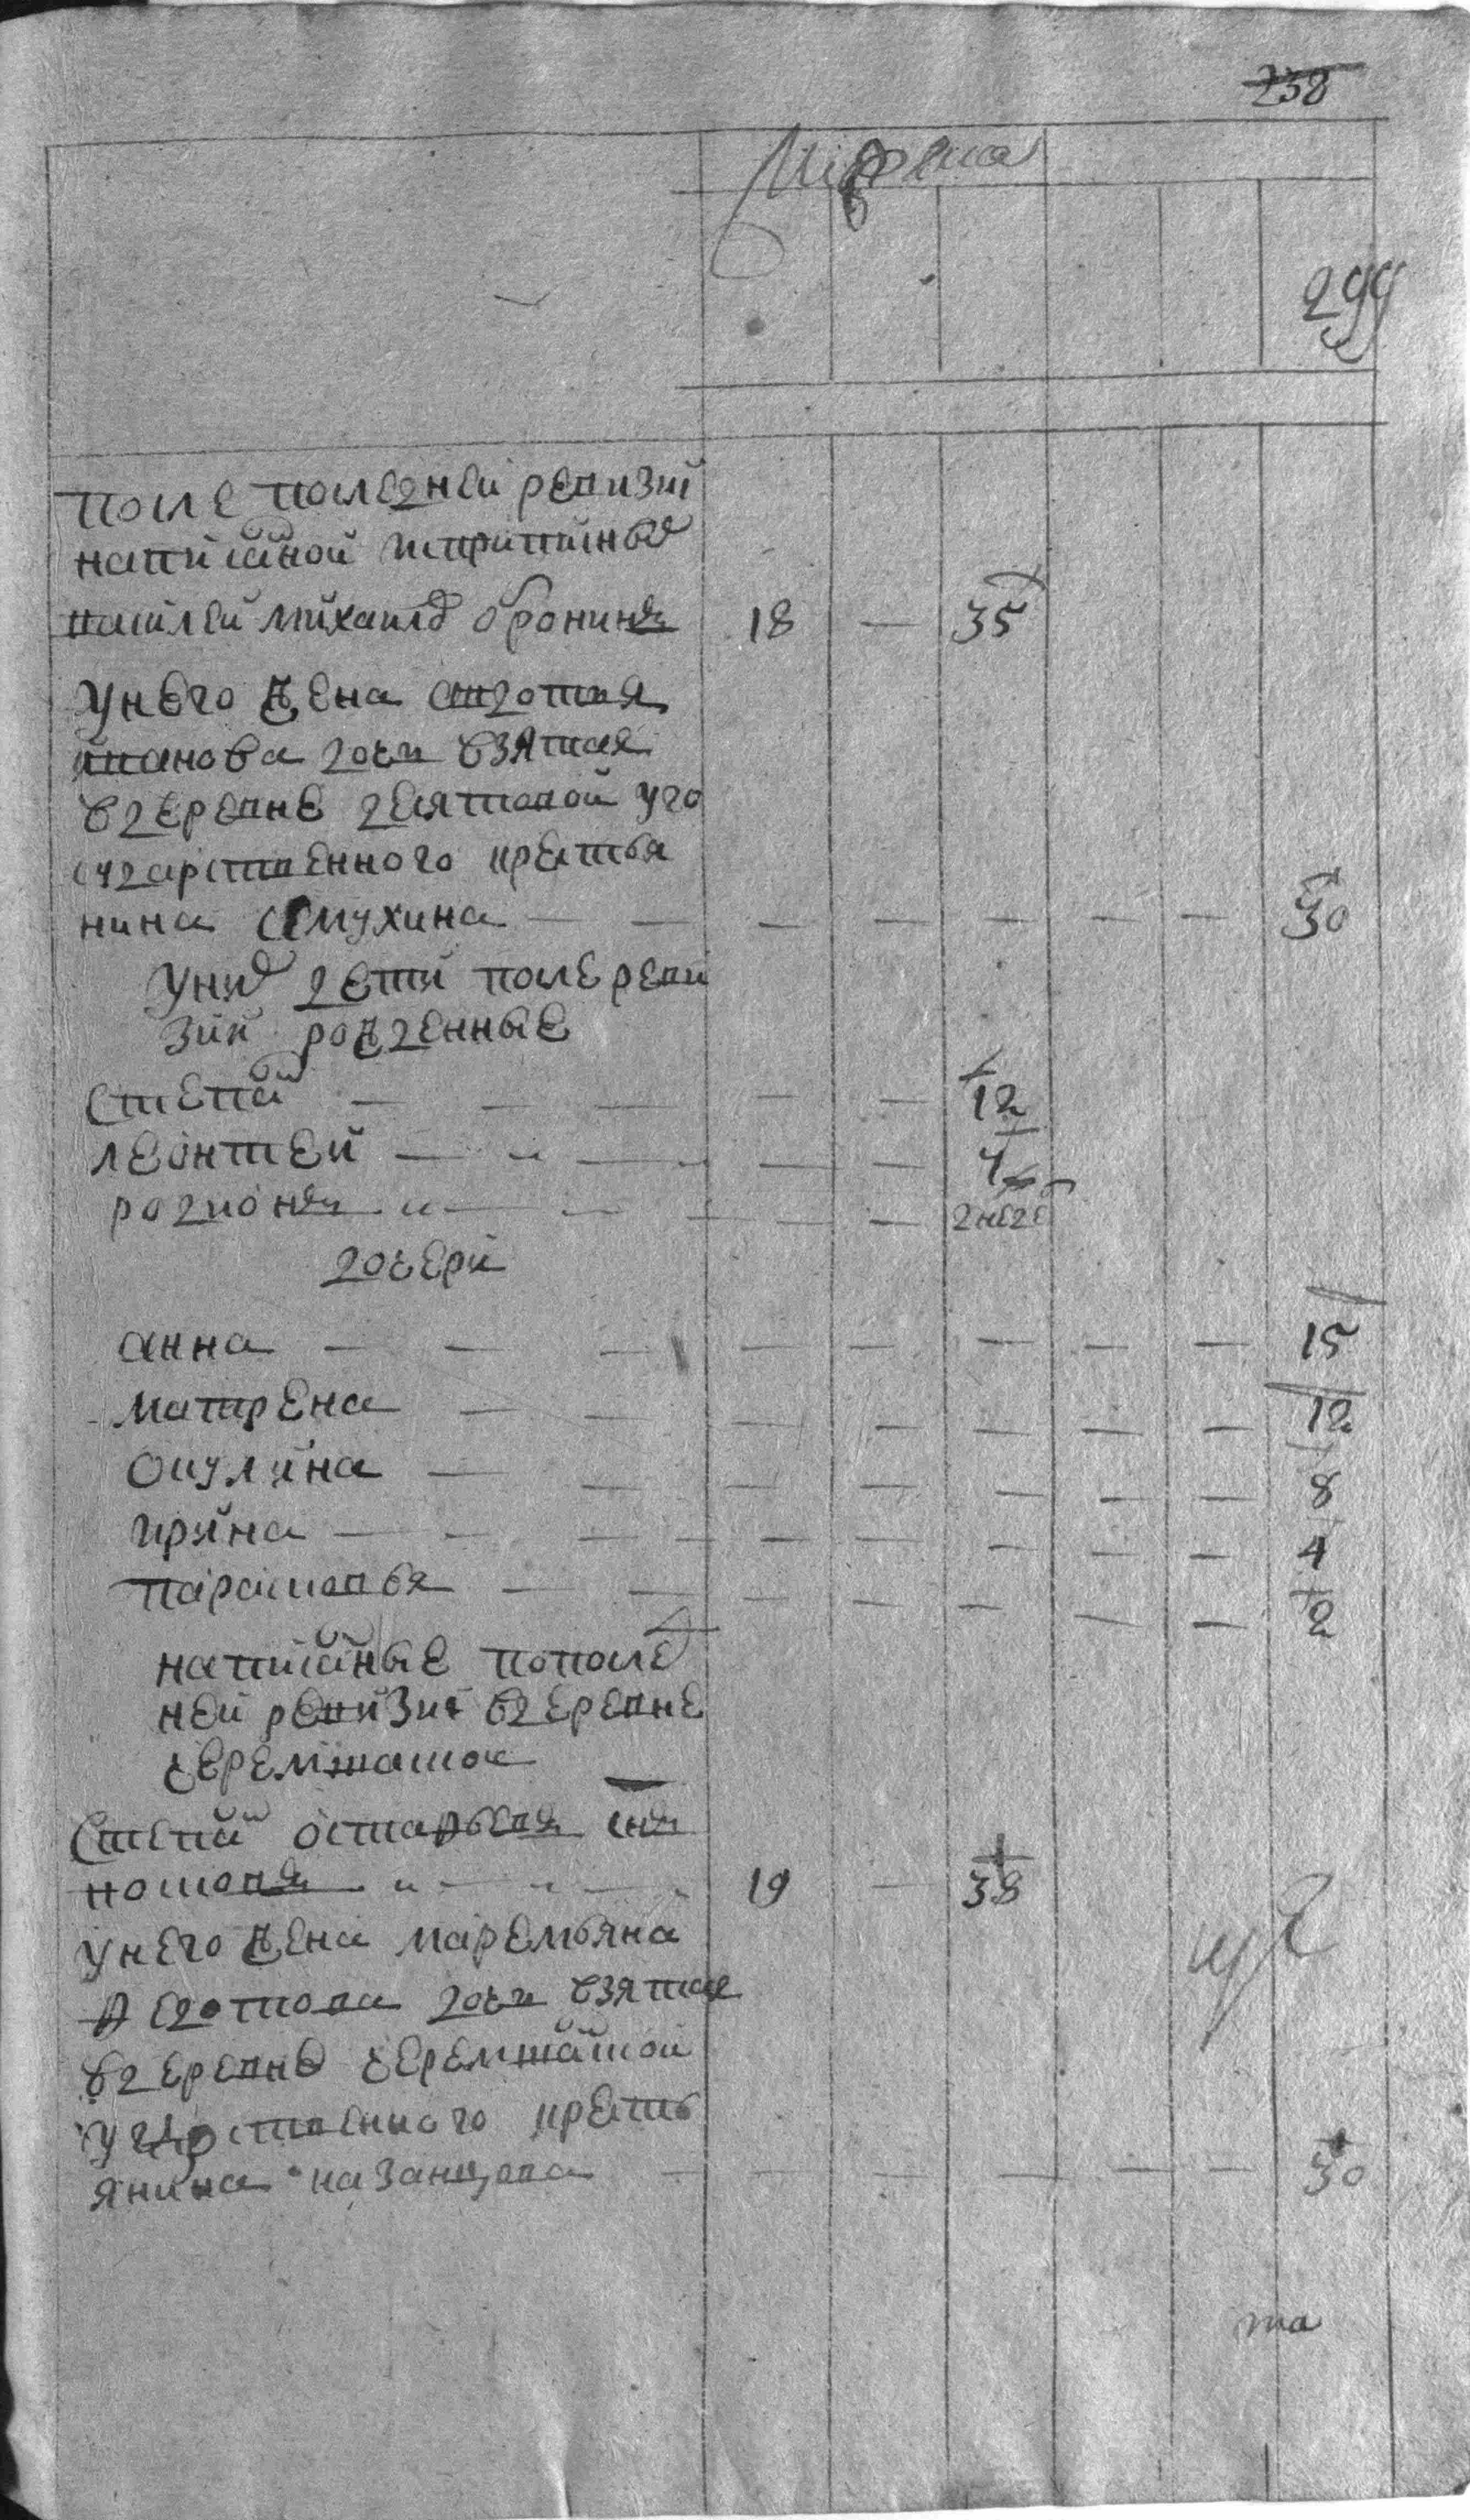 238
299
после последней ревизии
написаной исприпиных
василей михаилов оронинъ 18 — 35
У него жена авдотья
иванова дочь взятая
в деревне десятовой у го
сударственного крестья
нина Самухина — — — — — — — 30
У них дети после реви
зии рожденные
Степан — — — — — 12
леонтей — — — — — 4
родионъ — — — — 2 неде
дочери
анна — — — — — — — — 15
матрена — — — — — — — 12
окулина — — — — — — — 8
ирина — — — — — — — — 4
парасковья — — — — — — — 2
написаные по послед
ней ревизии в деревне
черемшаской
Степан астафьевъ снъ
носковъ — — — 19 — 38
у него жена маремьяна
федотова дочь взятая
в деревне черемшаской
у гдрственного кресть
янина казанцова — — — — — — 30
та